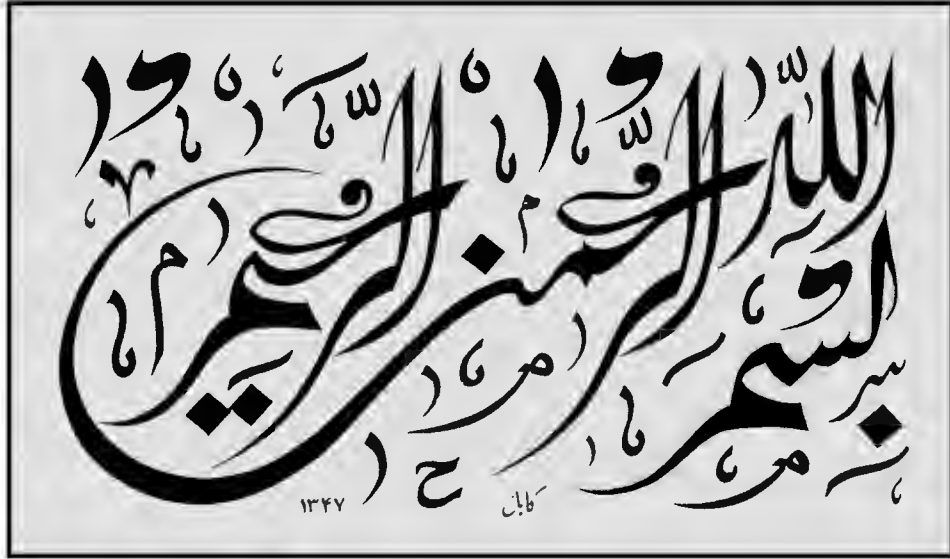 بسم الله الرحمن الرحیم
۱۳۴۷